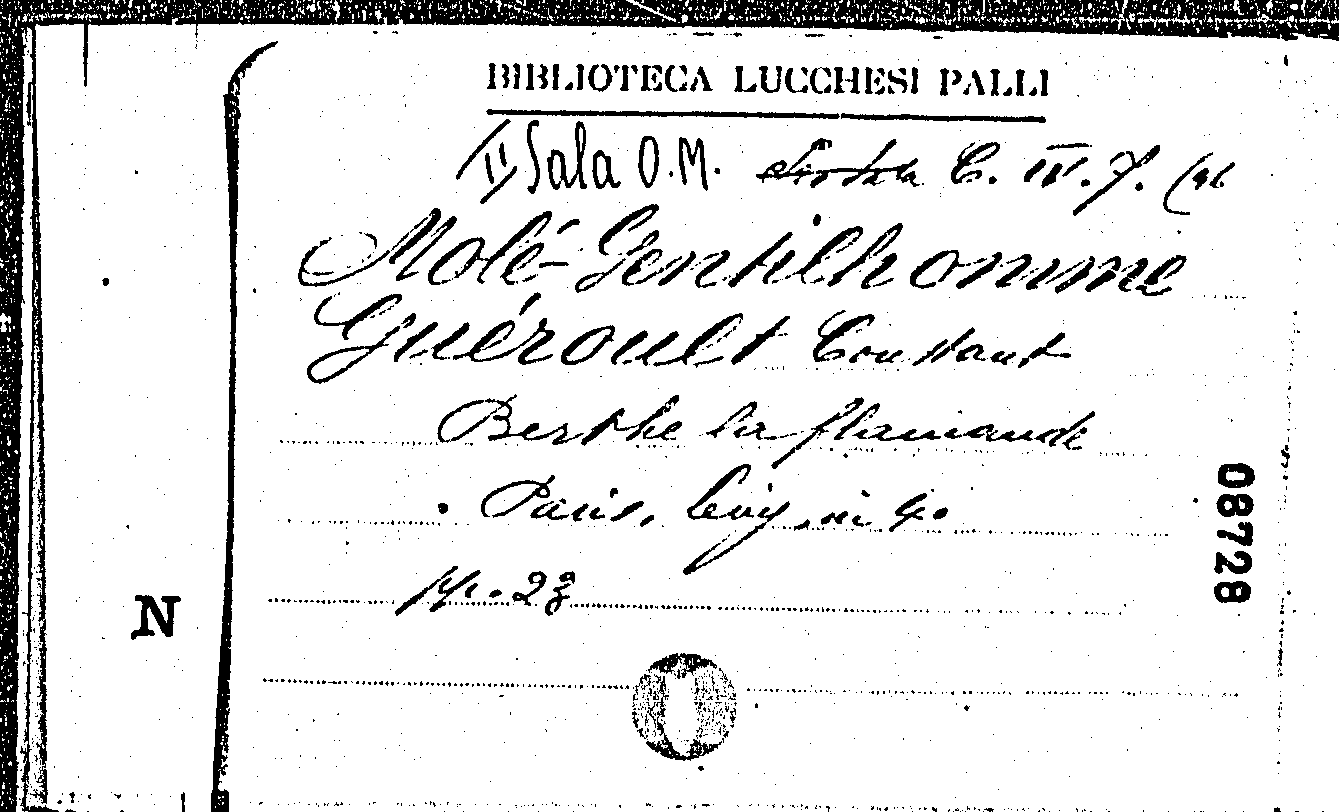 BIBLIOTECA LUCCHESI PALLI
II Sala O.M. C. IV. 7. (96
Molé-Gentilhomme
Guéroult Constant
Berthe la flamande
Paris, Levy, in 4°
pp. 23
N
08728